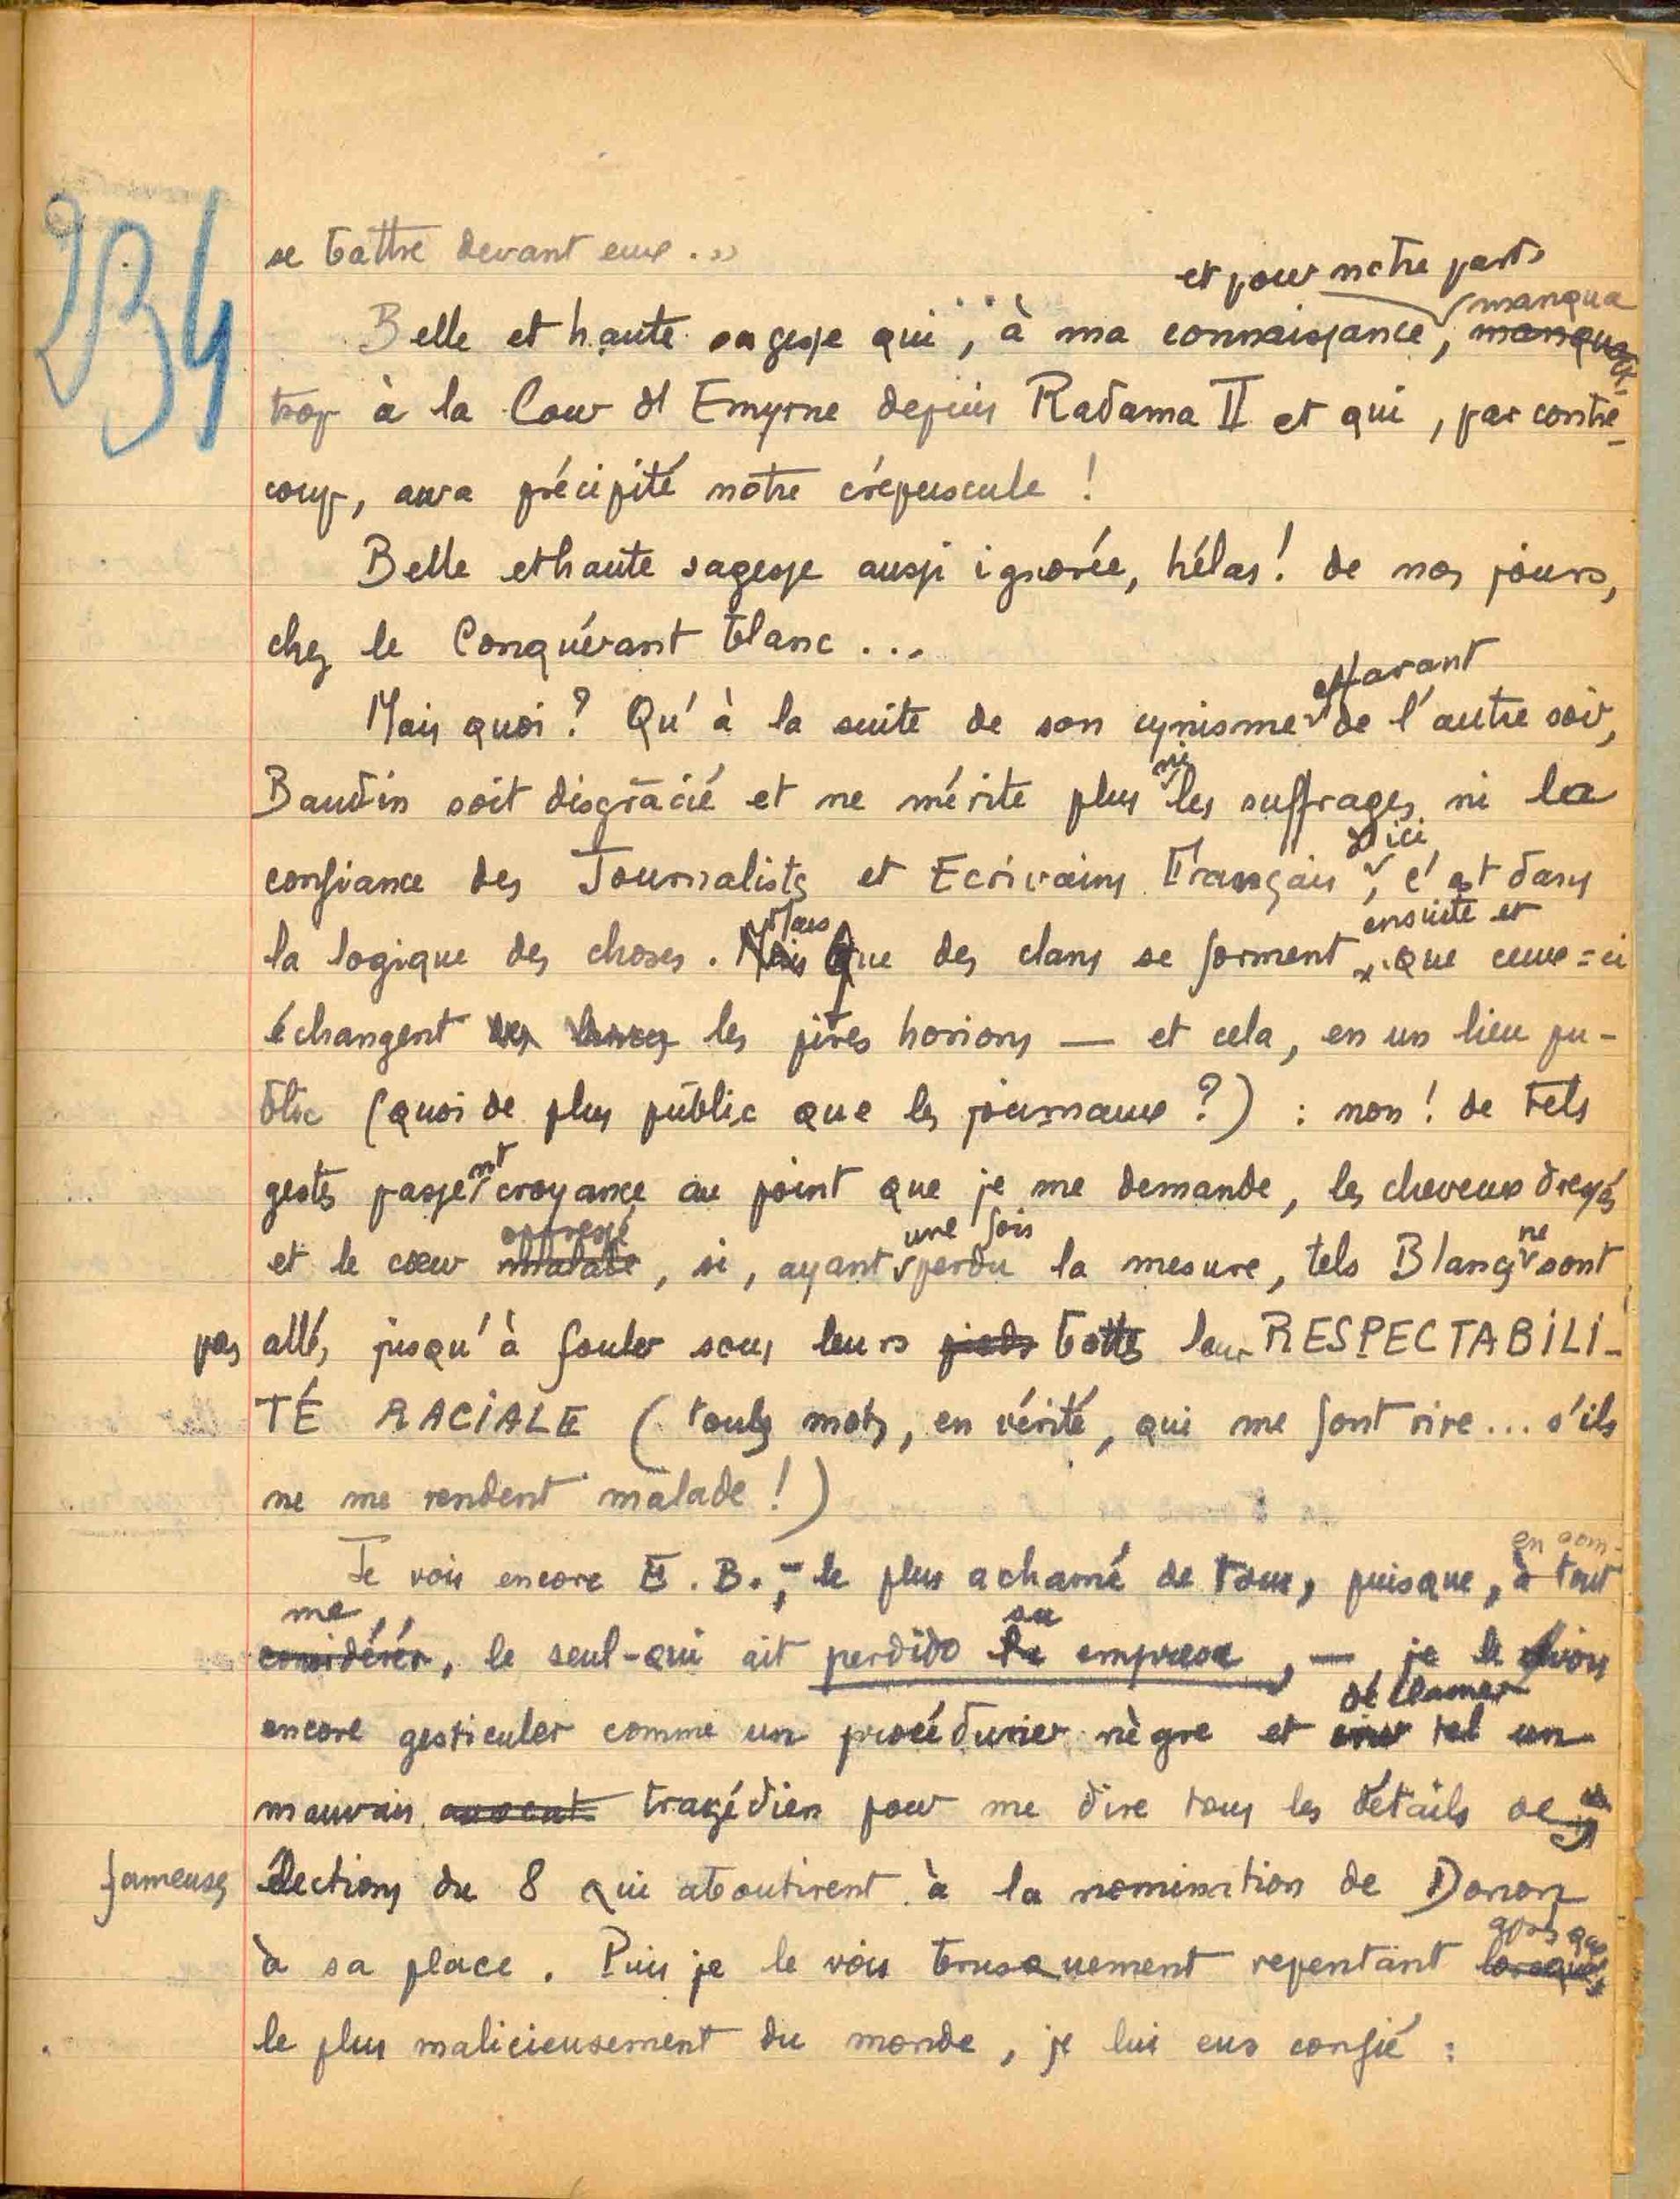 234
se battre devant eux. »
et pour notre part,
manqua
Belle et haute sagesse qui, à ma connaissance, manqua
trop à la Cour d'Emyrne depuis Radama II et qui, par contre-
coup, aura précipité notre crépuscule !
Belle et haute sagesse aussi ignorée, hélas ! de nos jours,
chez le Conquérant blanc ...
effarant
Mais quoi ? Qu'à la suite de son cynisme de l'autre soir,
ni
Baudin soit disgrâcié et ne mérite plus les suffrages ni la
d'ici
confiance des Journalistes et Ecrivains Français, c'est dans
Mais
ensuite et
la logique des choses. Mais Que des clans se forment que ceux-ci
échangent les les pires horions — et cela, en un lieu pu-
blic (quoi de plus public que les journaux ?) : non ! de tels
nt
gestes passe croyance au point que je me demande, les cheveux dressés
oppressé
une fois
ne
et le cœur malade, si, ayant perdu la mesure, tels Blancs sont
pas allés jusqu'à fouler sous leurs pieds bottes leur RESPECTABILI-
TÉ RACIALE (touts mots, en vérité, qui me font rire... s'ils
ne me rendent malade !)
en som-
Je vois encore E. B., - le plus acharné de tous, puisque, à tout
me
sa
considérer, le seul qui ait perdido la empresa, — je le vois
déclamer
encore gesticuler comme un procédurier nègre et tel un
mauvais avocat tragédien pour me dire tous les détails de
fameuses élections du 8 qui aboutirent à la nomination de Donon
après que
à sa place. Puis je le vois brusquement repentant lorsque,
le plus malicieusement du monde, je lui eus confié :